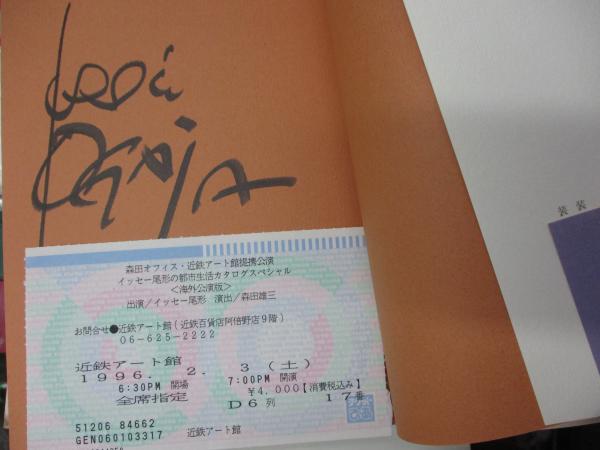 森田オフィス・近鉄アート館提携公演
イッセー尾形の都市生活カタログスペシャル
<海外公演版>
出演/イッセー尾形 演出/森田雄三
お問合せ●近鉄アート館(近鉄百貨店阿倍野店9階)
06-625-2222
近鉄アート館
1996. 2. 3 (土)
6:30PM 開場 7:00PM 開演
¥4,000【消費税込み】
全席指定 D6列 17番
51206 84662
GEN060103317 近鉄アート館
装 装